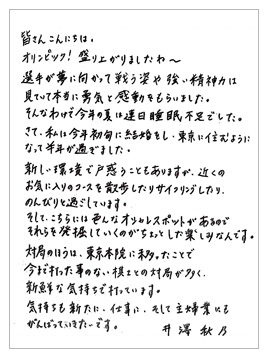 皆さんこんにちは。
オリンピック!盛り上がりましたわ〜
選手が夢に向かって戦う姿や強い精神力は
見ていて本当に勇気と感動をもらいました。
そんなわけで今年の夏は連日睡眠不足でした。
さて、私は今年初旬に結婚をし、東京に住むように
なって半年が過ぎました。
新しい環境で戸惑うこともありますが、近くの
お気に入りのコースを散歩したりサイクリングしたり、
のんびりと過ごしています。
そして、こちらには色んなオシャレスポットがあるので
それらを発掘していくのがちょっとした楽しみなんです。
対局のほうは、東京本院に移ったことで
今まで打った事のない棋士との対局が多く、
新鮮な気持ちで打っています。
気持ちも新たに、仕事に、そして主婦業にも
がんばっていきたいです。 井澤秋乃